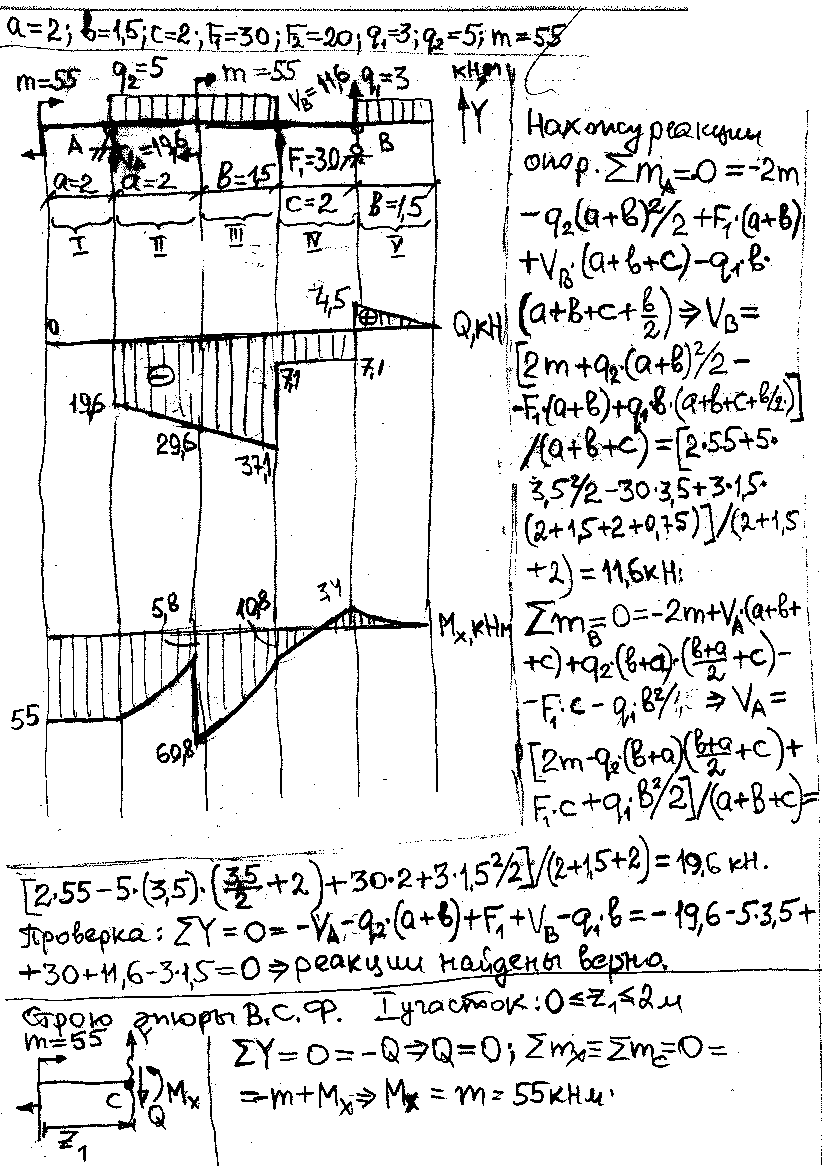 a=2; b=1,5; c=2; F₁=30; F₂=20; q₁=3; q₂=5; m=55
m=55 q₂=5 m=55 V_B=11,6 q₁=3 кНм
Y
A =19,6 F₁=30 B
a=2 a=2 B=1,5 c=2 B=1,5
I II III IV V
4,5
0 Q,кН
⊕
⊖
19,6 29,6 37,1 7,1 7,1
5,8 10,8 3,4
Mₓ,кНм
55
60,8
Нахожу реакции
опор. Σm_A=0=-2m
-q₂(a+в)²/2+F₁·(a+в)
+V_B·(a+в+c)-q₁·в·
(a+в+c+в/2)⇒V_B=
[2m+q₂·(a+в)²/2-
-F₁·(a+в)+q₁·в·(a+в+c+в/2)]
/(a+в+c)=[2·55+5·
3,5²/2-30·3,5+3·1,5·
(2+1,5+2+0,75)]/(2+1,5
+2)=11,6кН;
Σm_B=0=-2m+V_A·(a+в+
+c)+q₂·(в+a)·((в+a)/2+c)-
-F₁·c-q₁·в²/2 ⇒V_A=
[2m-q₂·(в+a)((в+a)/2+c)+
F₁·c+q₁·в²/2]/(a+в+c)=
[2·55-5·(3,5)·(3,5/2+2)+30·2+3·1,5²/2]/(2+1,5+2)=19,6 кН.
Проверка: ΣY=0=-V_A-q₂·(a+в)+F₁+V_B-q₁·в=-19,6-5·3,5+
+30+11,6-3·1,5=0⇒реакции найдены верно.
Строю эпюры В.С.Ф. I участок: 0≤z₁≤2м
m=55 Y
C Q Mₓ
z₁
ΣY=0=-Q⇒Q=0; Σmₓ=Σm_c=0=
=-m+Mₓ⇒Mₓ=m=55кНм.